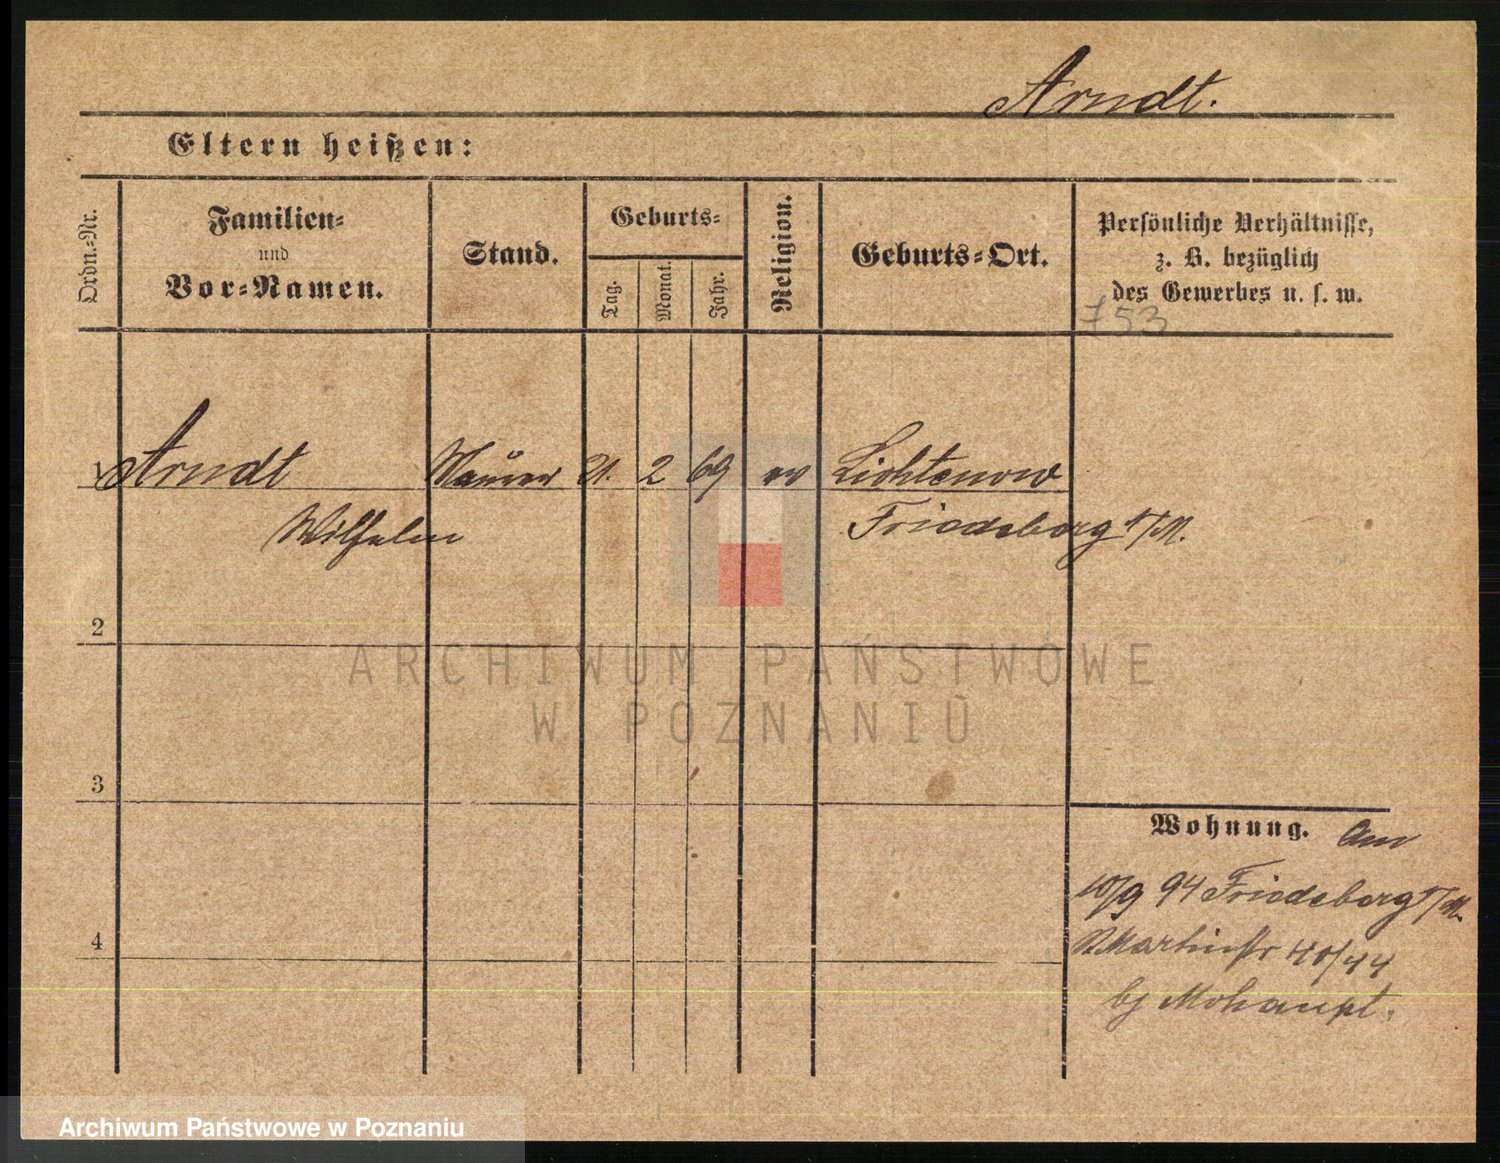 Arndt.
Eltern heißen:
Ordn.-Nr.
Familien-
und
Vor-Namen.
Stand.
Geburts-
Tag.
Monat.
Jahr.
Religion.
Geburts-Ort.
Persönliche Verhältnisse,
z. B. bezüglich
des Gewerbes u. s. w.
753
1 Arndt Maurer 21. 2 69 ev Lichtenow
Wilhelm Friedeberg N/M.
2
ARCHIWUM PAŃSTWOWE
W POZNANIU
3
Wohnung. Am
10/9 94 Friedeberg N/M.
Martinstr
4
bj Mohaupt.
Archiwum Państwowe w Poznaniu